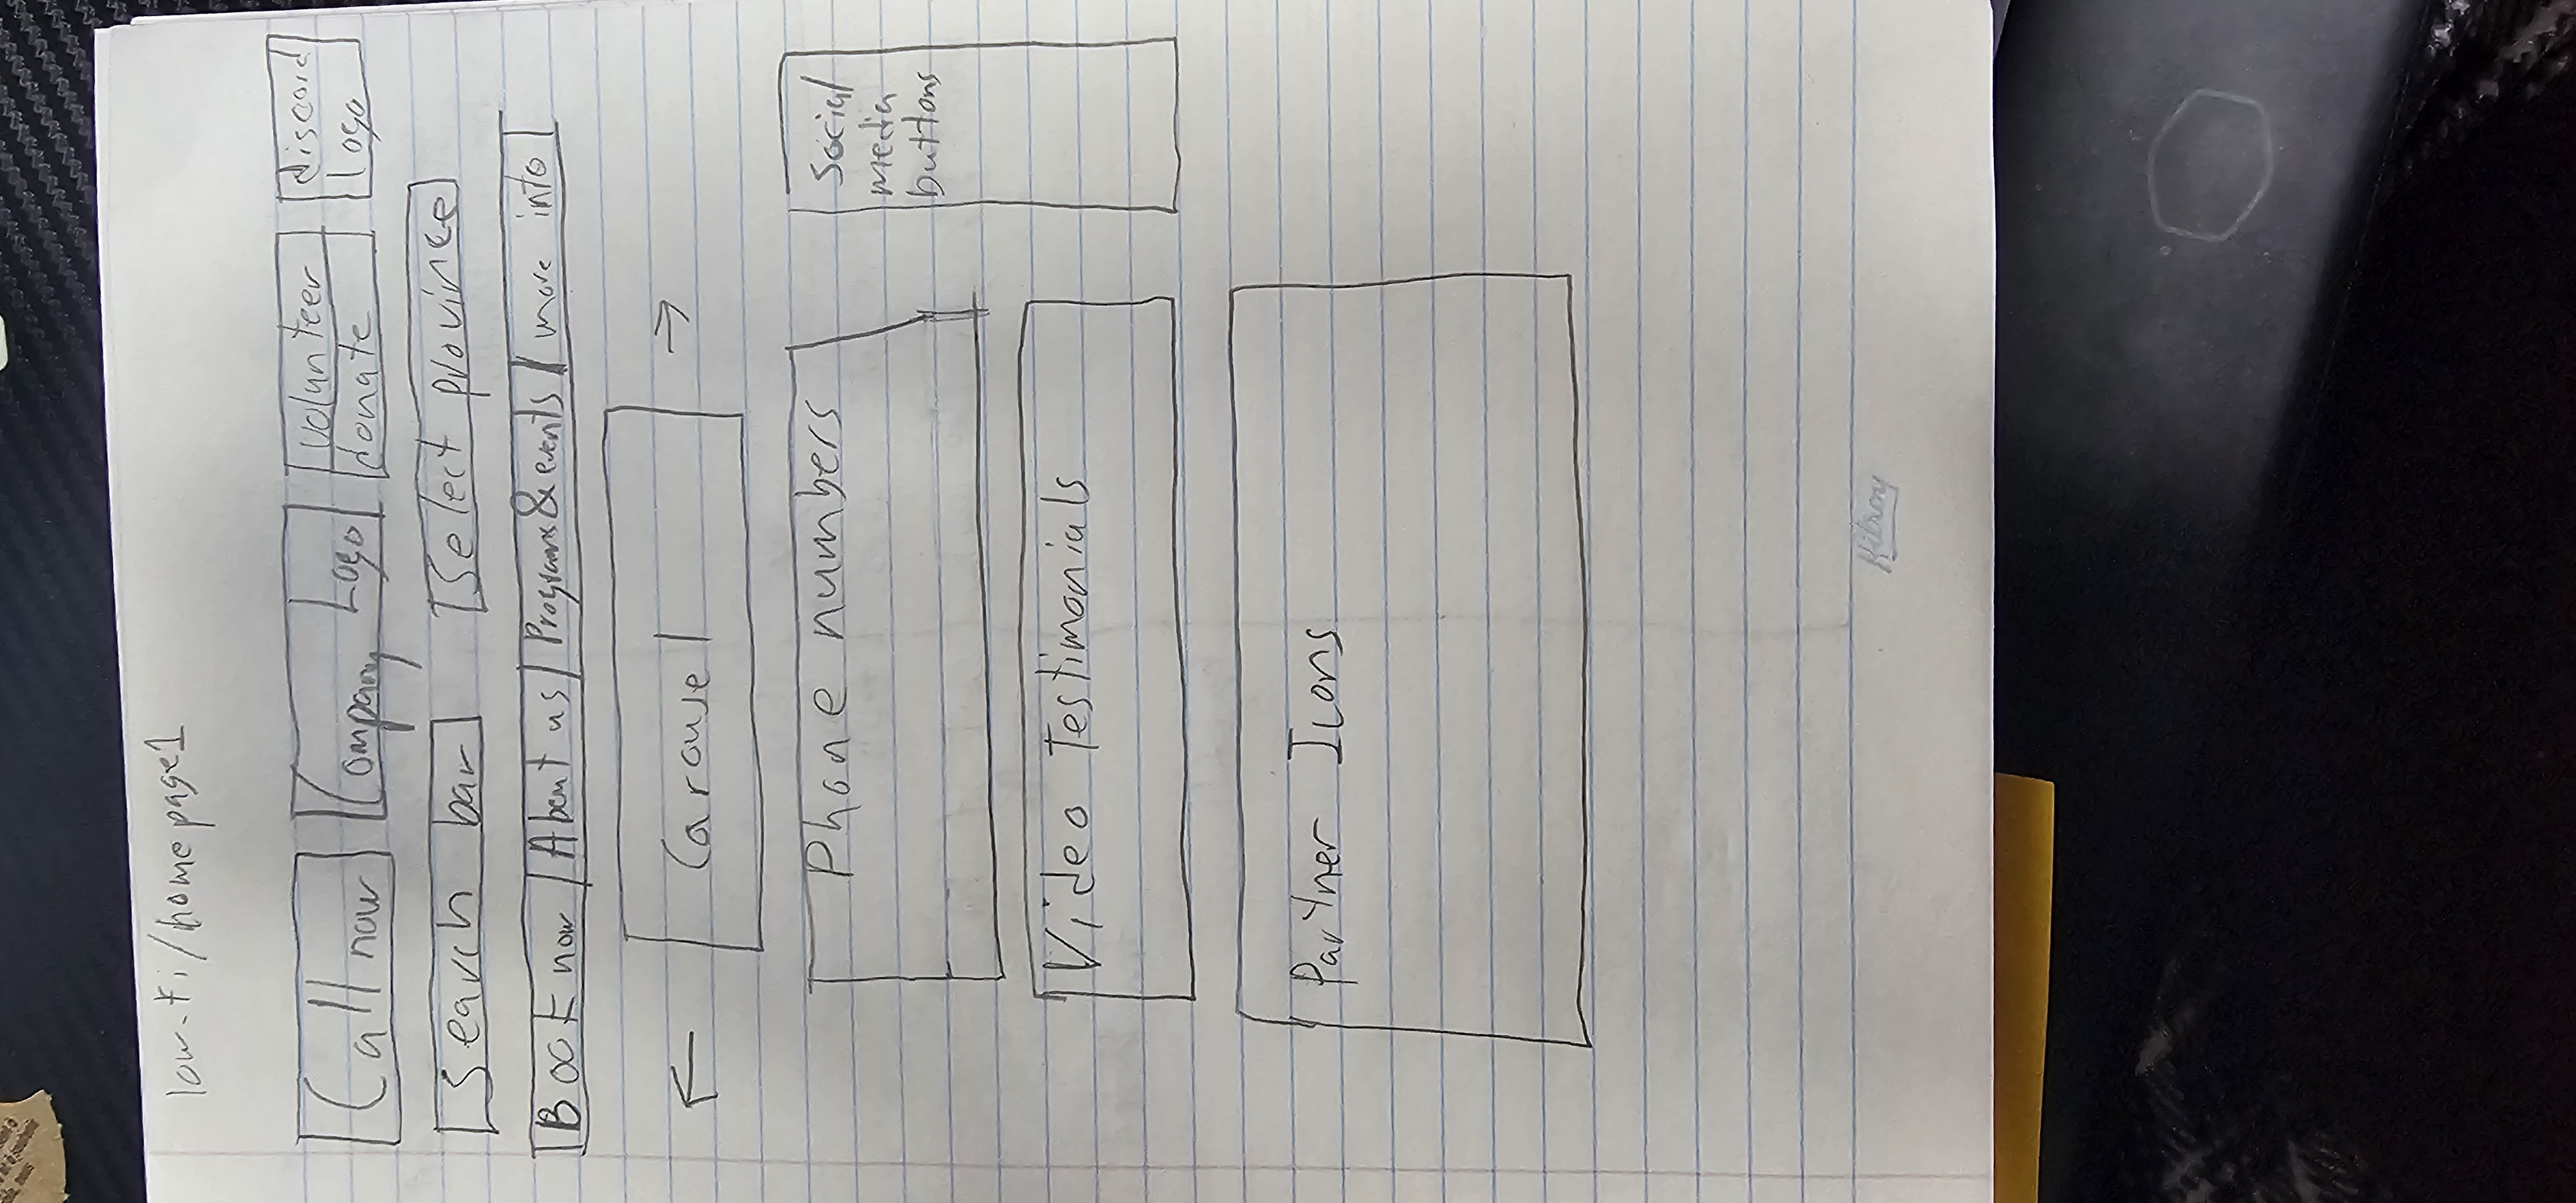 low-fi/homepage1
Call now
Company Logo
volunteer
donate
discord
logo
Search bar
Select province
Book now
About us
Programs & events
more info
←
Carousel
→
Phone numbers
Social
media
buttons
Video Testimonials
Partner Icons
Hilroy